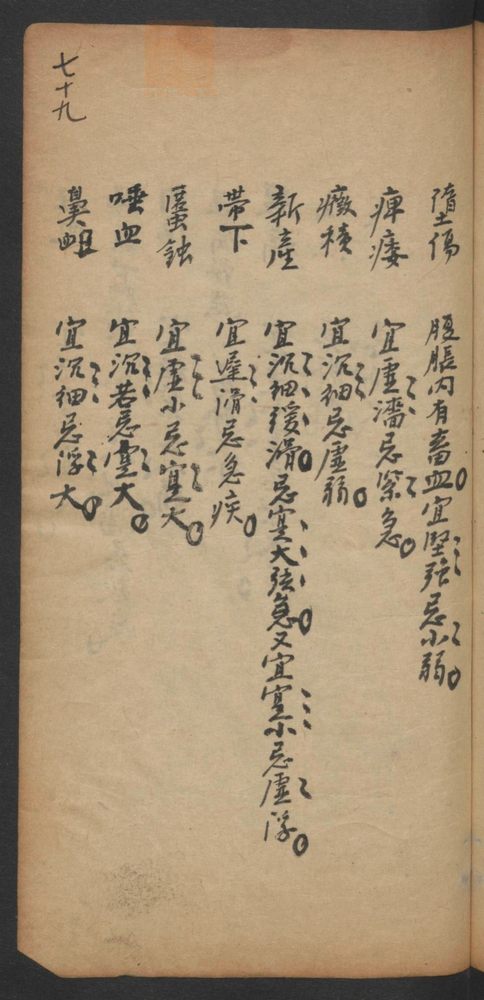 堕傷 腹脹内有畜血。宜堅強忌小弱。
痺痿 宜虚濇忌緊急。
癥積 宜沉細忌虚弱。
新産 宜沉細緩滑。忌寔大弦急。又宜寔小忌虚浮。
帶下 宜遲滑忌急疾。
蝕 宜虚小忌寔大。
唾血 宜沉若忌寔大。
鼻衄 宜沉細忌浮大。
七十九